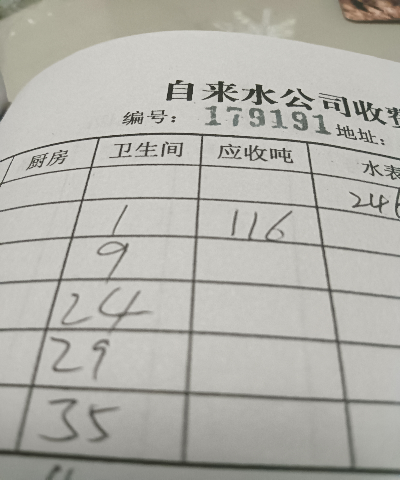 自来水公司收费
编号：179191 地址：
厨房 卫生间 应收吨 水表
246
1 116
9
24
29
35